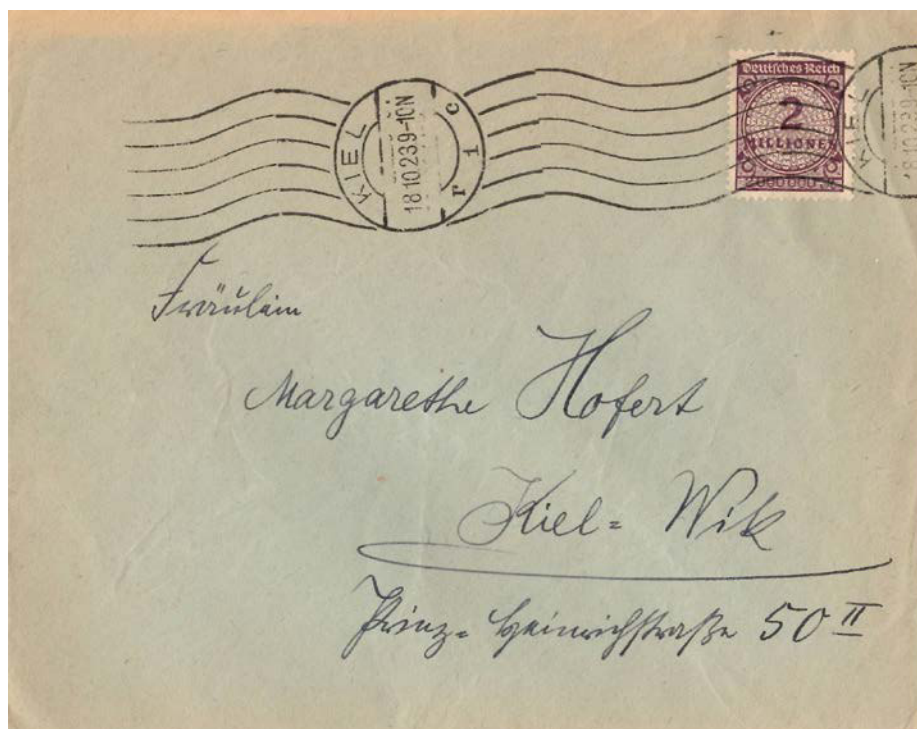 KIEL
18.10.23.9-10N
c 1 r
Deutsches Reich
2
MILLIONEN
2000000
KIEL
18.10.23.9-10N
Fräulein
Margarethe Hofert
Kiel = Wik
Prinz = Heinrichstraße 50 II